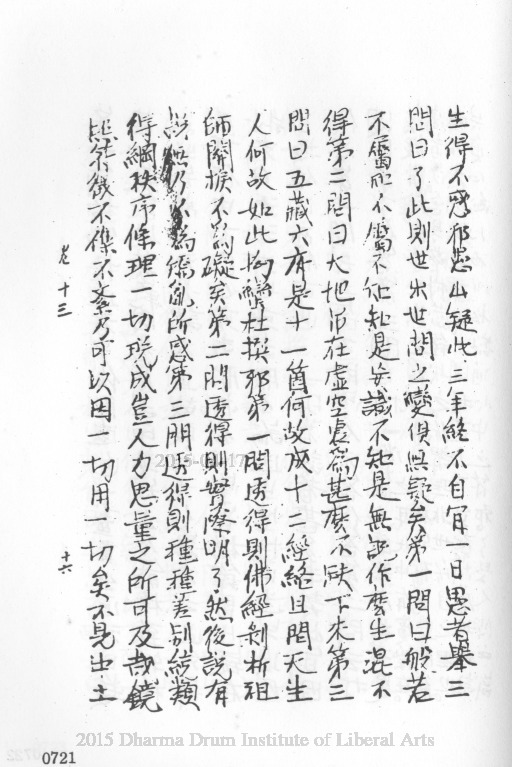 生得不愚山疑此三年終不自宜一日愚者舉三
問曰了此則世出世間之變俱無疑矣第一問曰般若
不屬知不屬不知知是妄識不知是無記作麼生混不
得第二問曰大地浮在虛空處為甚麼不跌下來第三
問曰五藏六府是十一箇何故成十二經絡且問天生
人何故如此拘蠻杜撰邪第一問透得則佛經剝析祖
師關捩不礙矣第二問透得則實際明了然後說有
說無乃不為矯亂所惑第三問透得則種種差別統類
得綱秩序條理一切現成豈人力思量之所可及哉鏡
照不混不紊乃可以因一切用一切矣不見出土
卷十三
十六
2015 Dharma Drum Institute of Liberal Arts
0721